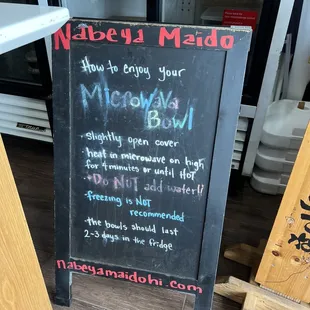 Nabeya Maido
How to enjoy your
Microwava
Bowl
• slightly open cover
• heat in microwave on high
for 4 minutes or until HOT
• Do NOT add water!!
• freezing is NOT
recommended
• the bowls should last
2-3 days in the fridge
nabeyamaidohi.com